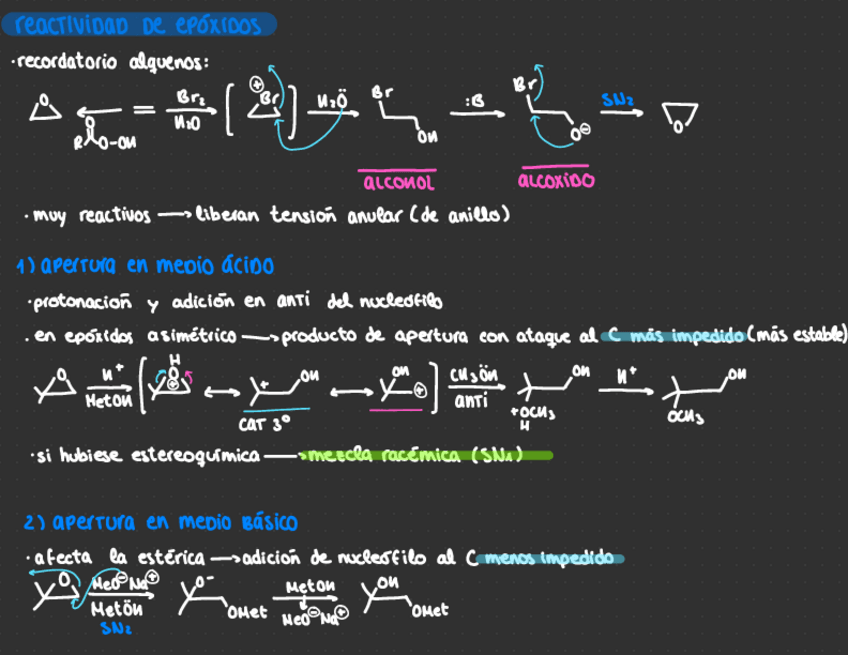 reactividad de epóxidos
·recordatorio alquenos:
O Br₂ ⊕ Br H₂Ö Br :B Br SN₂
H₂O OH O⊖ O
R O-OH
alcohol alcoxido
·muy reactivos → liberan tensión anular (de anillo)
1) apertura en medio ácido
·protonación y adición en anti del nucleófilo
·en epóxidos asimétrico → producto de apertura con ataque al C más impedido (más estable)
O H⁺ H O ⊕ + OH OH ⊕ CH₃ÖH OH H⁺ OH
MetOH cat 3º anti +OCH₃ OCH₃
H
·si hubiese estereoquímica → mezcla racémica (SN1)
2) apertura en medio básico
·afecta la estérica → adición de nucleófilo al C menos impedido
O MeO⊖Na⊕ O⁻ MetOH OH
MetÖH OMet MeO⊖Na⊕ OMet
SN₂